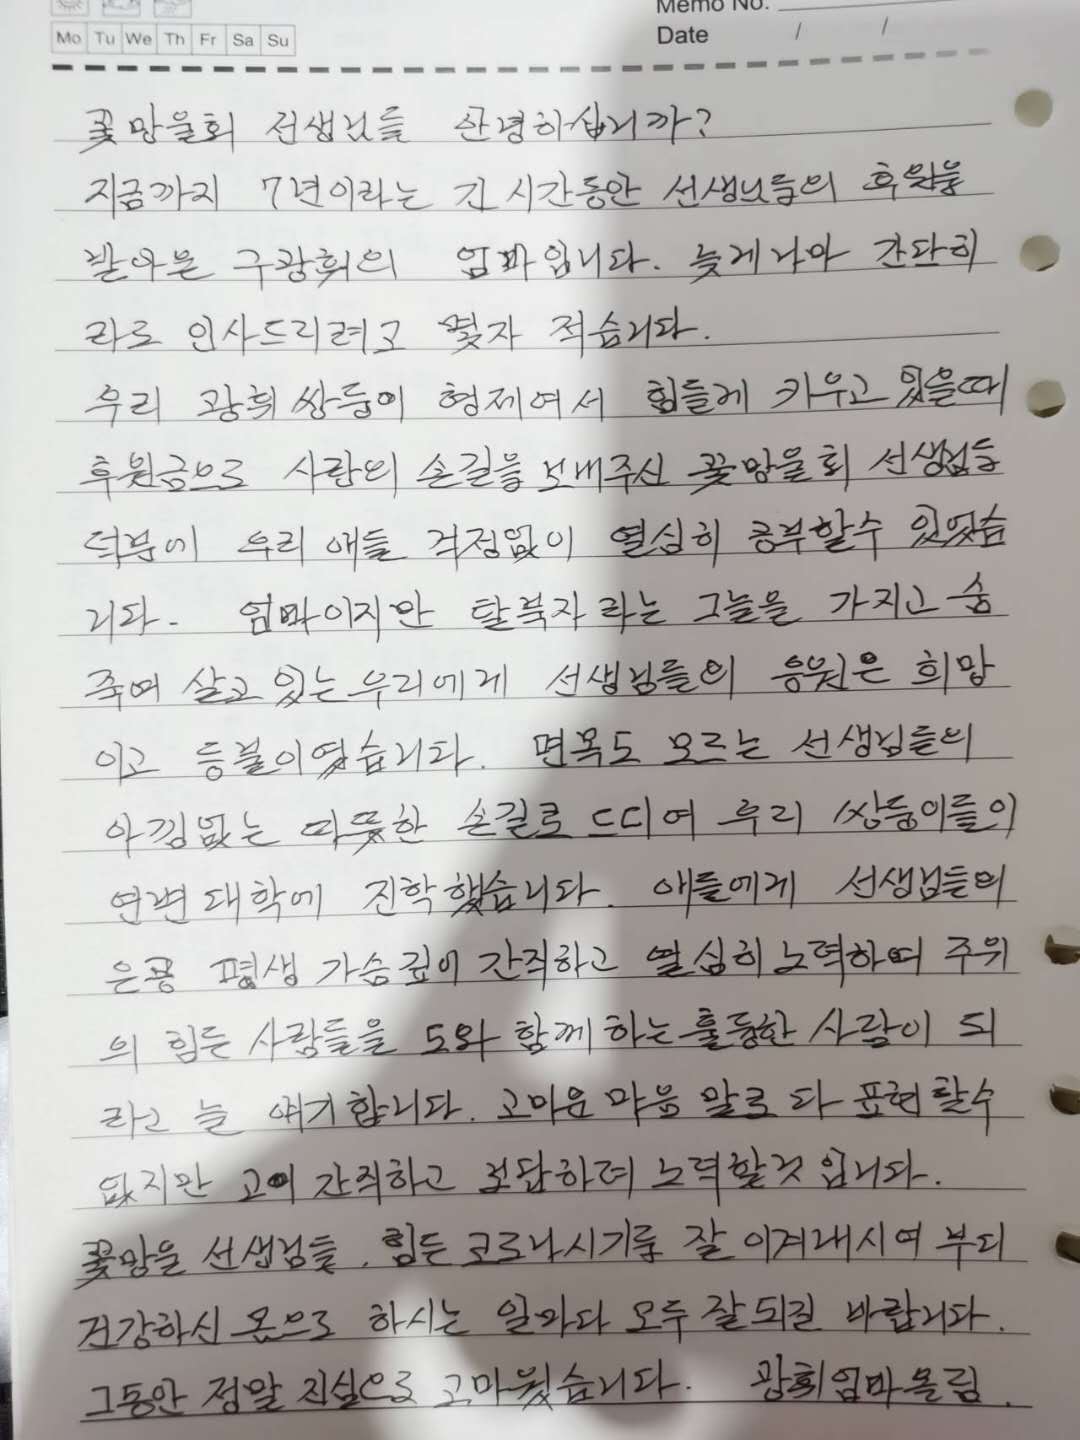 Memo No.
Mo Tu We Th Fr Sa Su
Date / /
꽃망울회 선생님들 안녕하십니까?
지금까지 7년이라는 긴 시간동안 선생님들의 후원을
받아온 구광휘의 엄마입니다. 늦게나마 간단히
라도 인사드리려고 몇자 적습니다.
우리 광휘 쌍둥이 형제여서 힘들게 키우고 있을때
후원금으로 사랑의 손길을 보내주신 꽃망울회 선생님들
덕분에 우리 애들 걱정없이 열심히 공부할수 있었습
니다. 엄마이지만 탈북자라는 그늘을 가지고 숨
죽여 살고 있는 우리에게 선생님들의 응원은 희망
이고 등불이였습니다. 면목도 모르는 선생님들의
아낌없는 따뜻한 손길로 드디여 우리 쌍둥이들이
연변대학에 진학했습니다. 애들에게 선생님들의
은공 평생 가슴깊이 간직하고 열심히 노력하여 주위
의 힘든 사람들을 도와 함께하는 훌륭한 사람이 되
라고 늘 얘기합니다. 고마운 마음 말로 다 표현할수
없지만 고이 간직하고 보답하려 노력할것입니다.
꽃망울 선생님들, 힘든 코로나시기를 잘 이겨내시여 부디
건강하신 몸으로 하시는 일마다 모두 잘되길 바랍니다.
그동안 정말 진심으로 고마웠습니다. 광휘엄마 올림.